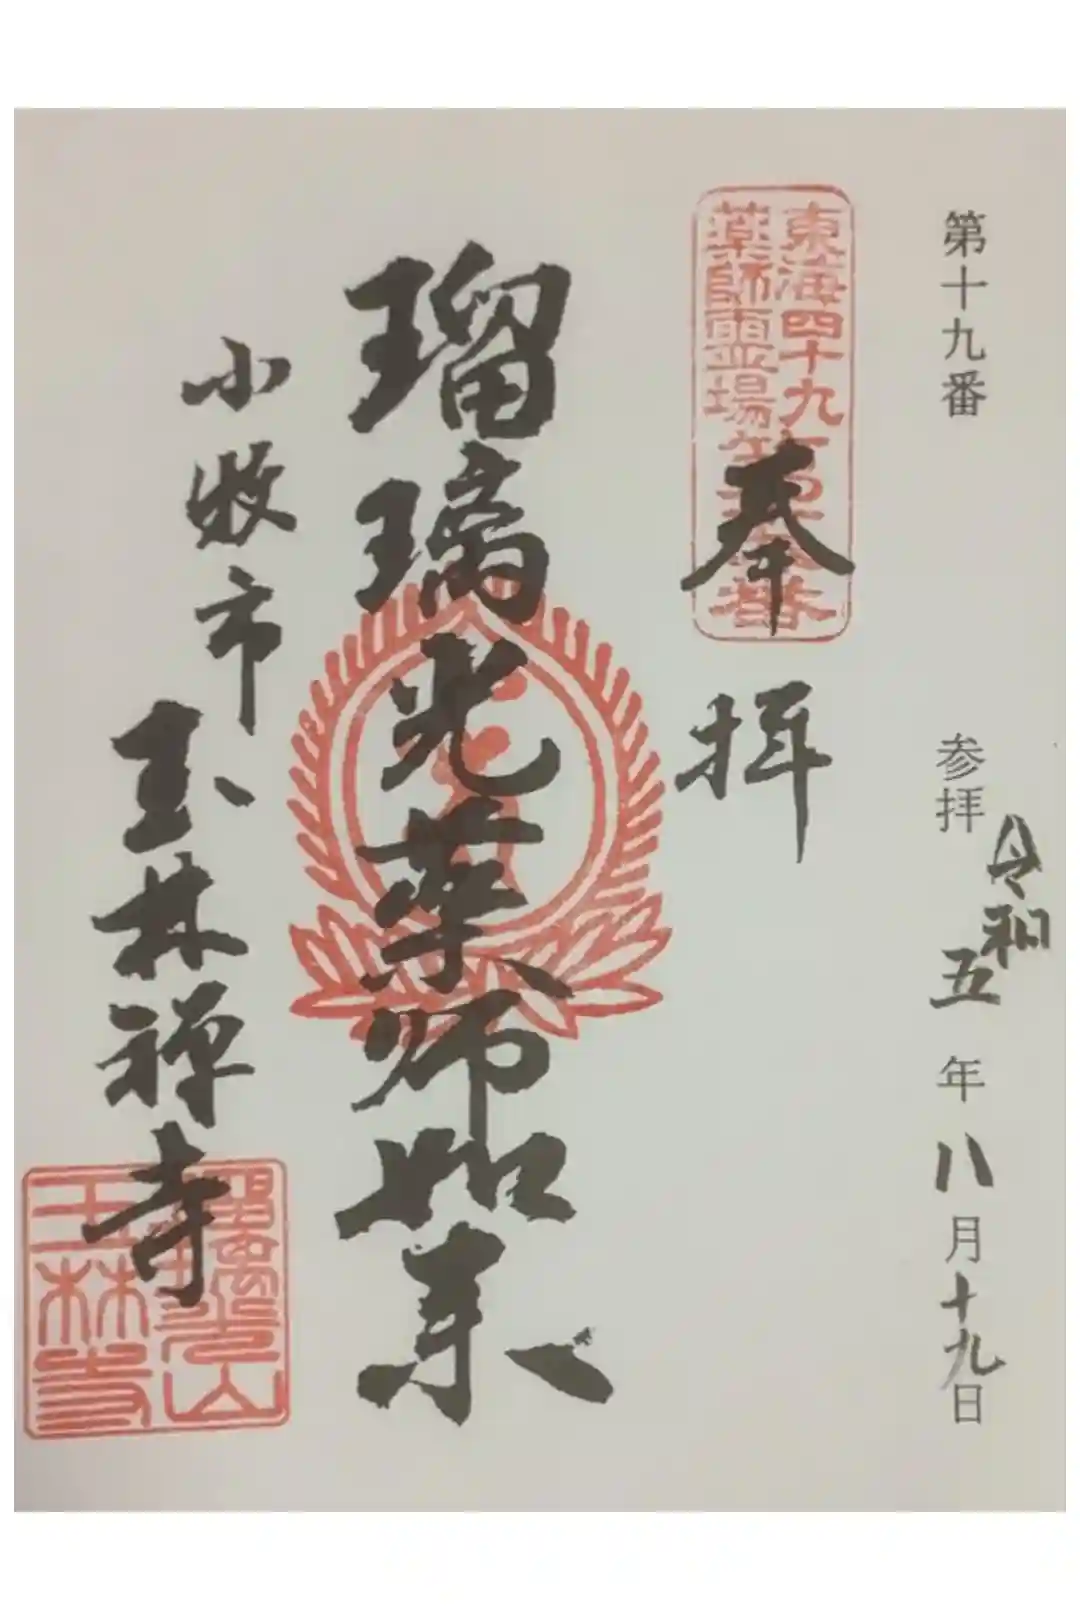 第十九番 参拝 令和五年八月十九日
東海四十九
薬師霊場第
番
奉拝
瑠璃光薬師如来
小牧市
玉林禅寺
瑠璃光山
玉林寺